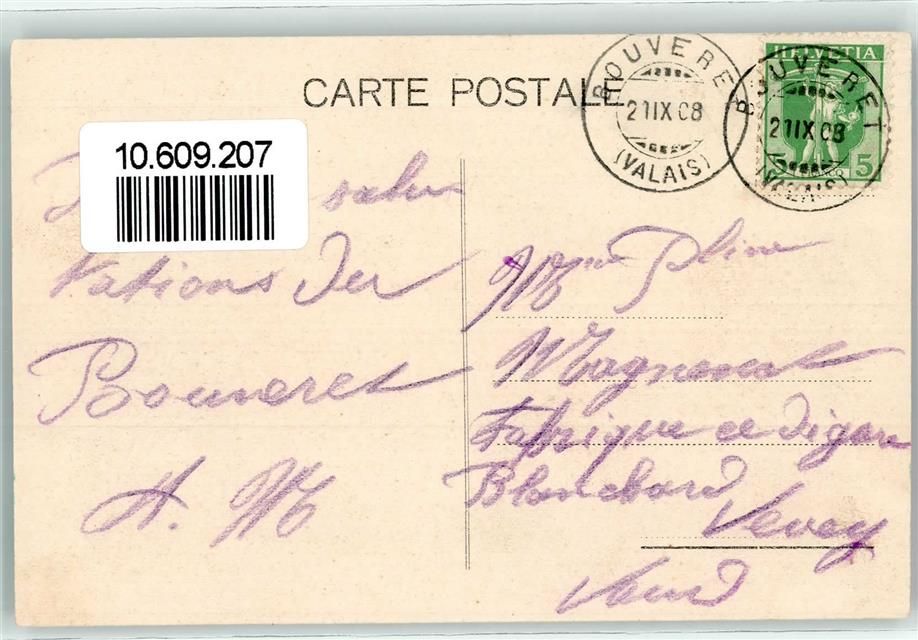 CARTE POSTALE
BOUVERET
21 IX 08
(VALAIS)
HELVETIA
BOUVERET
21 IX 08
(VALAIS)
5
10.609.207
salu
tations du
Bouveret
A. M
Pline
Magnenat
Fabrique de Cigare
Blanchard
Vevey
Vaud